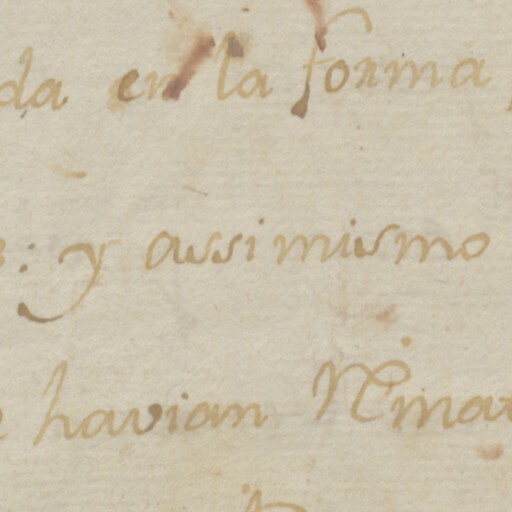 da en la forma
: y assimismo
havian